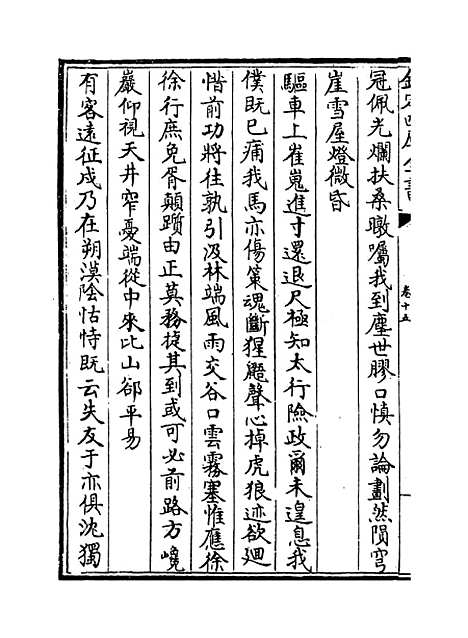 卷十五
冠佩光爛扶桑暾囑我到塵世膠口慎勿論劃然隕穹
崖雪屋燈微昏
驅車上崔嵬進寸還退尺極知太行險政爾未遑息我
僕既已痡我馬亦傷策魂斷猩鼯聲心掉虎狼迹欲廻
惜前功將往孰引汲林端風雨交谷口雲霧塞惟應徐
徐行庶免胥顛躓由正莫務捷其到或可必前路方巉
巖仰視天井窄憂端從中來比山郤平易
有客遠征戍乃在朔漠陰怙恃既云失友于亦俱沈獨